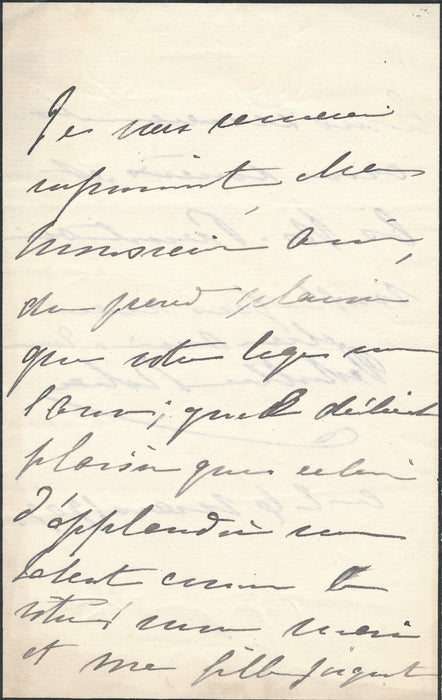 Je vous remercie
infiniment cher
Monsieur ami,
du grand plaisir
que votre loge m'a
; quel délicat
plaisir que celui
d'applaudir un
talent comme le
vôtre, mon mari
et ma fille joignent